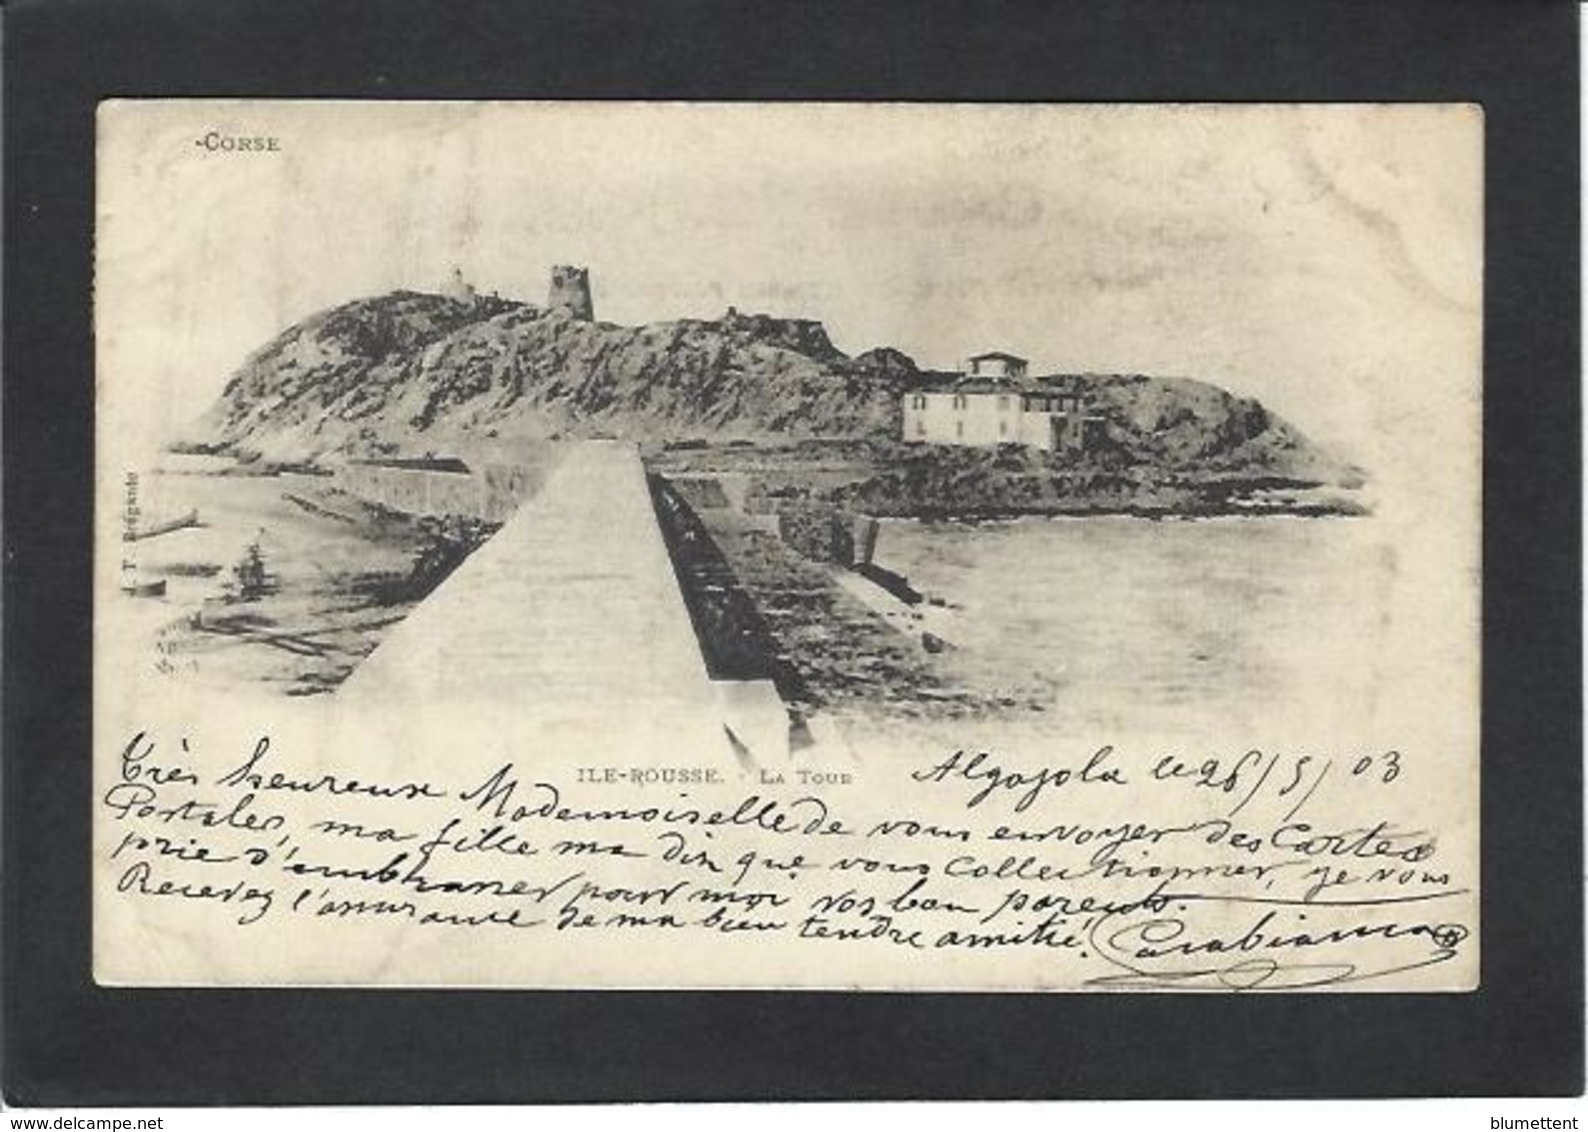 CORSE
J. T. Brégante
ILE-ROUSSE. - LA TOUR
Algajola le 26/5/03
Très heureux Mademoiselle de vous envoyer des Cartes
Postales, ma fille m'a dix que vous Collectionner, je vous
prie d'embrasser pour moi vos bon parents.
Recevez l'assurance de ma bien tendre amitié.
delcampe.net
blumettent